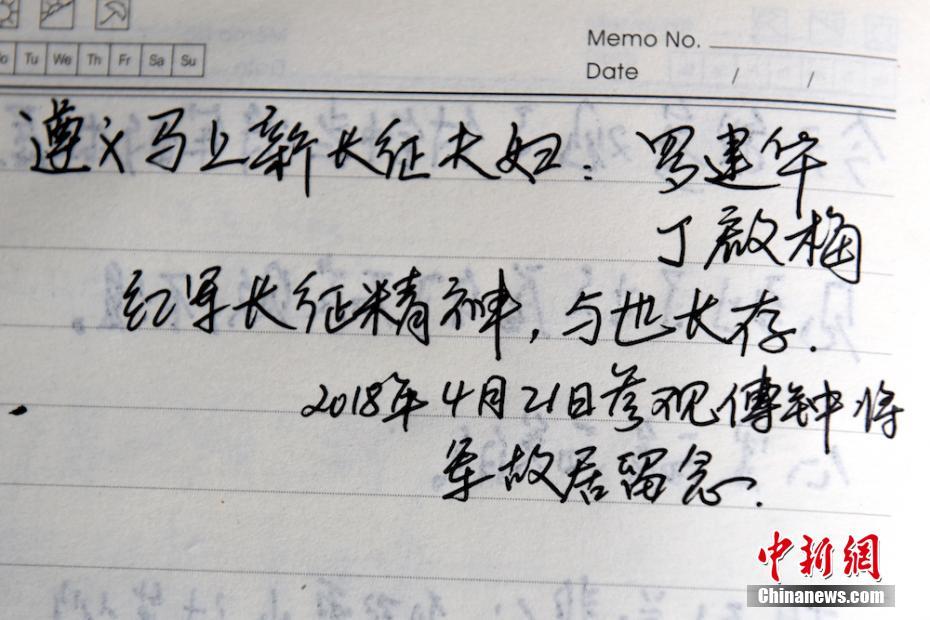 Memo No.
Tu We Th Fr Sa Su
Date / /
遵义马上新长征夫妇：罗建华
丁啟梅
红军长征精神，与也长存.
2018年4月21日参观傅钟将
军故居留念.
中新網
Chinanews.com